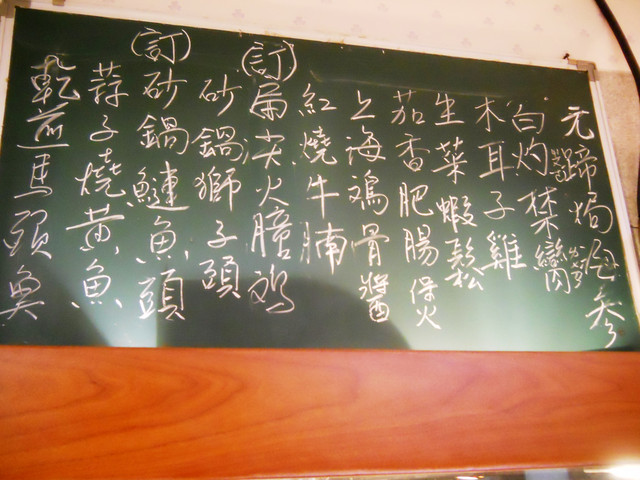 元蹄焗海參
白灼禁臠
木耳子雞
生菜蝦鬆
茄香肥腸煲
上海鸡骨醬
紅燒牛腩
(訂)扁尖火膧鸡
砂鍋獅子頭
(訂)砂鍋鰱魚頭
蒜子燒黃魚
乾煎馬頭魚